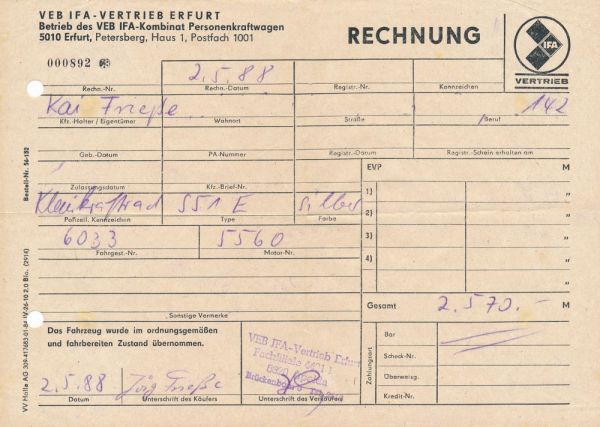 VEB IFA-VERTRIEB ERFURT
Betrieb des VEB IFA-Kombinat Personenkraftwagen
5010 Erfurt, Petersberg, Haus 1, Postfach 1001
RECHNUNG
IFA
VERTRIEB
000892
2.5.88
Rechn.-Nr. Rechn.-Datum Registr.-Nr. Kennzeichen
Kai Frieße 142
Kfz.-Halter / Eigentümer Wohnort Straße Beruf
Geb.-Datum PA-Nummer Registr.-Datum Registr.-Schein erhalten am
EVP M
Zulassungsdatum Kfz.-Brief-Nr.
1) "
Kleinkraftrad S51 E silber
Polizeil. Kennzeichen Type Farbe
2) "
6033 5560
3) "
Fahrgest.-Nr. Motor-Nr.
4) "
Gesamt 2.570.- M
Sonstige Vermerke
Das Fahrzeug wurde im ordnungsgemäßen
und fahrbereiten Zustand übernommen.
VEB IFA-Vertrieb Erfurt
Zahlungsart
Bar
Scheck-Nr.
Überweisg.
Kredit-Nr.
2.5.88 Jörg Frieße
Datum Unterschrift des Käufers Unterschrift des Verkäufers
Bestell-Nr. 56-182